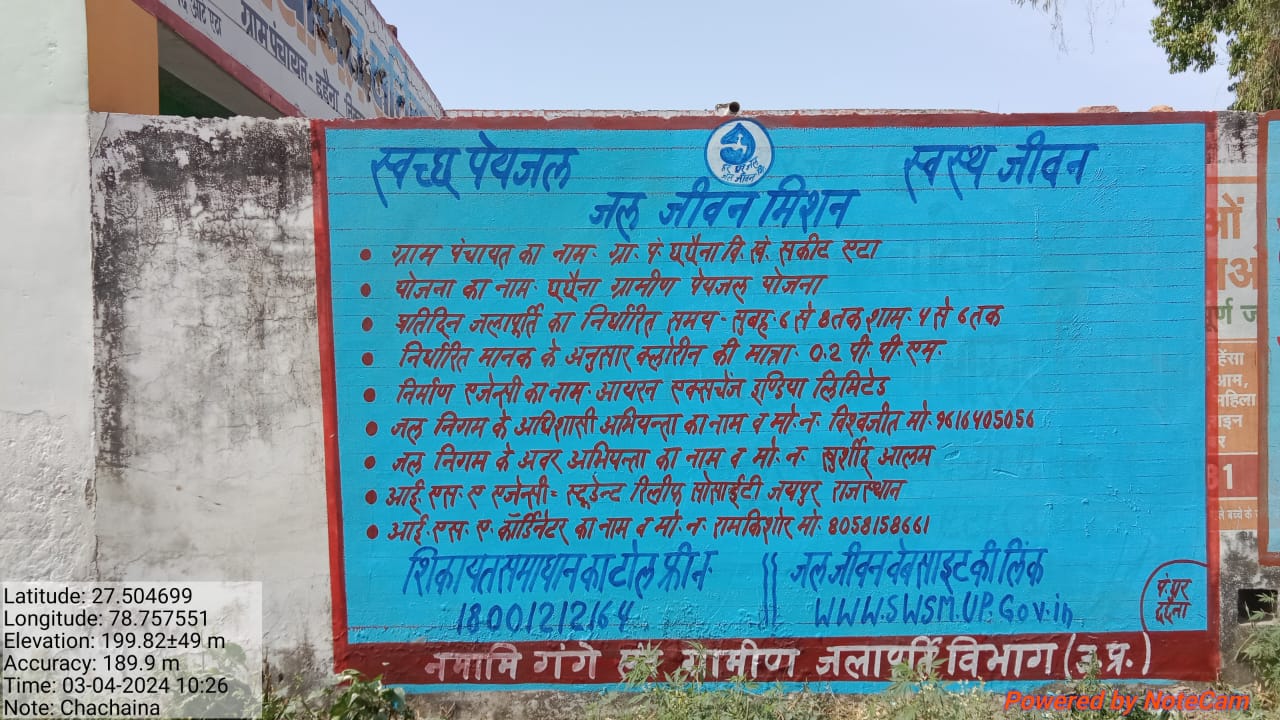 ग्राम पंचायत - दहैना
स्वच्छ पेयजल
स्वस्थ जीवन
जल जीवन मिशन
• ग्राम पंचायत का नाम- ग्रा. पं. घूघैना वि. खं. सकीट एटा
• योजना का नाम- घूघैना ग्रामीण पेयजल योजना
• प्रतिदिन जलापूर्ति का निर्धारित समय- सुबह- ६ से 8 तक शाम- ५ से ६ तक
• निर्धारित मानक के अनुसार क्लोरीन की मात्रा- 0.2 पी. पी. एम.
• निर्माण एजेन्सी का नाम- आयरन एक्सचेंज इण्डिया लिमिटेड
• जल निगम के अधिशासी अभियन्ता का नाम व मो. न. विश्वजीत मो.
• जल निगम के अवर अभियन्ता का नाम व मो. न. खुर्शीद आलम
• आई. एस. ए एजेन्सी= स्टूडेन्ट रिलीफ सोसाईटी जयपुर राजस्थान
• आई. एस. ए. कॉर्डिनेटर का नाम व मो. न. रामकिशोर मो. 8058158661
शिकायत समाधान का टोल फ्री न.
18001212164
जल जीवन वेबसाइट की लिंक
WWW.SWSM.UP.Gov.in
नमामि गंगे एवं ग्रामीण जलापूर्ति विभाग (उ.प्र.)
Latitude: 27.504699
Longitude: 78.757551
Elevation: 199.82±49 m
Accuracy: 189.9 m
Time: 03-04-2024 10:26
Note: Chachaina
Powered by NoteCam